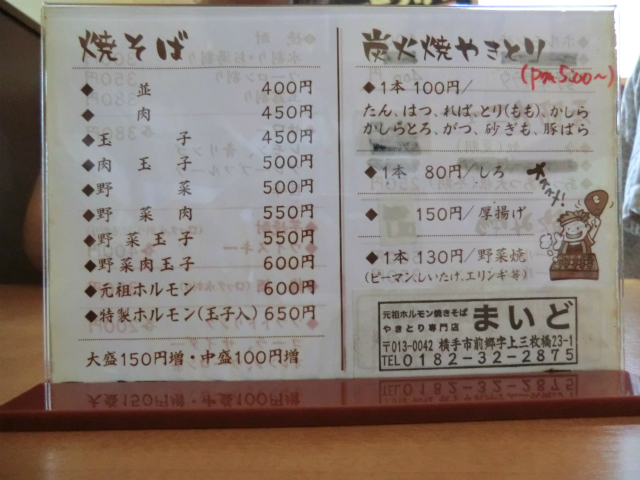 焼そば
◆並 400円
◆肉 450円
◆玉子 450円
◆肉玉子 500円
◆野菜 500円
◆野菜肉 550円
◆野菜玉子 550円
◆野菜肉玉子 600円
◆元祖ホルモン 600円
◆特製ホルモン(玉子入) 650円
大盛150円増・中盛100円増
炭火焼やきとり
(pm5:00~)
◆1本 100円/
たん、はつ、ればぁ、とり(もも)、かしら
かしらとろ、がつ、砂ぎも、豚ばら
◆1本 80円/しろ
◆150円/厚揚げ
◆1本 130円/野菜焼
(ピーマン、しいたけ、エリンギ等)
元祖ホルモン焼きそば
やきとり専門店 まいど
〒013-0042 横手市前郷字上三枚橋23-1
TEL 0182-32-2875